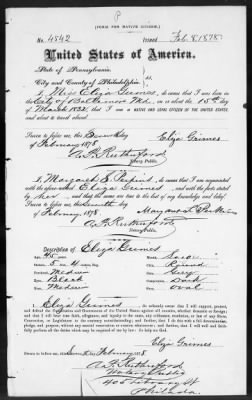 (FORM FOR NATIVE CITIZEN.)
No. 4542 Issued Feb. 8. 1878
United States of America.
State of Pennsylvania,
City and County of Philadelphia, } ss.
I, Miss Eliza Grimes, do swear that I was born in the
City of Baltimore Md., on or about the 15th day
of March 1832; that I am a NATIVE AND LOYAL CITIZEN OF THE UNITED STATES,
and about to travel abroad.
Sworn to before me, this Seventh day Eliza Grimes
of February 1878
A. G. Rutherford
Notary Public.
I, Margaret S. Perkins, do swear that I am acquainted
with the above named Eliza Grimes, and with the facts stated
by her, and that the same are true to the best of my knowledge and belief.
Sworn to before me, this Seventh day
of February 1878 Margaret S. Perkins
A. G. Rutherford
Notary Public.
Description of Eliza Grimes
Age, 45 years
Stature, 5 ft 4 in
Eyes, Black
Chin, Round
Hair, Grey
Complexion, Dark
Face, Oval
I, Eliza Grimes, do solemnly swear that I will support, protect,
and defend the Constitution and Government of the United States against all enemies, whether domestic or foreign; and
that I will bear true faith, allegiance, and loyalty to the same, any ordinance, resolution, or law of any State,
Convention, or Legislature to the contrary notwithstanding; and further, that I do this with a full determination,
pledge, and purpose, without any mental reservation or evasion whatsoever; and further, that I will well and faith-
fully perform all the duties which may be required of me by law. So help me God.
Eliza Grimes
Sworn to before me, this Seventh day February 1878
A. G. Rutherford
Notary Public
405 Library St
Philada.